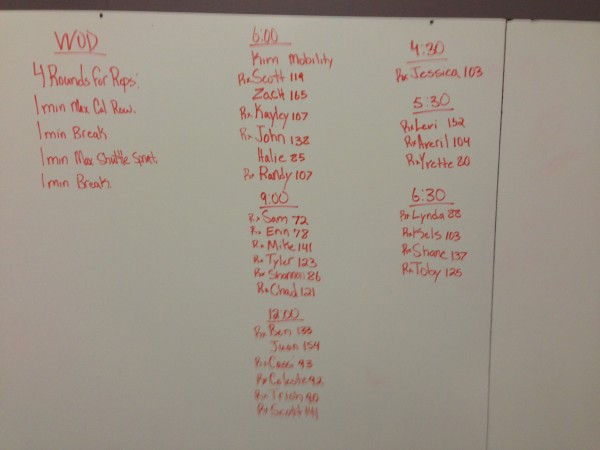 WOD
4 Rounds For Reps:
1 min Max Cal Row.
1 min Break
1 min Max Shuttle Sprint.
1 min Break.
6:00
Kim Mobility
Rx Scott 119
Zach 165
Rx Kayley 107
Rx John 138
Halie 85
Rx Randy 107
9:00
Rx Sam 72
Rx Erin 78
Rx Mike 141
Rx Tyler 123
Rx Shannon 86
Rx Chad 121
12:00
Rx Ben 133
Juan 154
Rx 93
Rx Celeste 92
Rx Trish 90
Rx Scott 141
4:30
Rx Jessica 103
5:30
Rx Levi 152
Rx Averil 104
Rx Yvette 80
6:30
Rx Lynda 88
Rx Kels 103
Rx Shane 137
Rx Toby 125